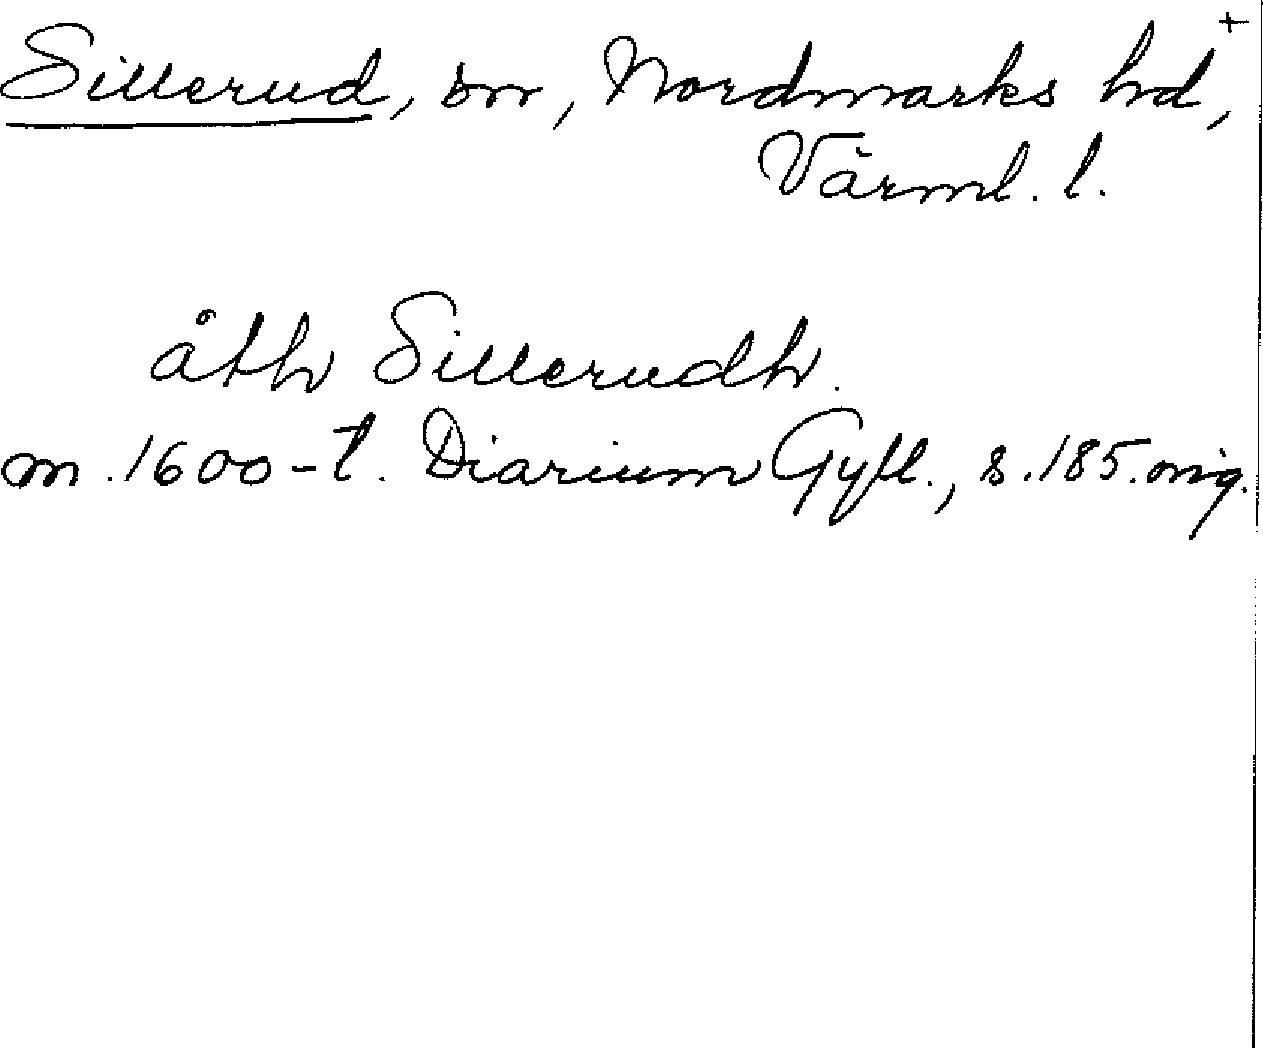 Sillerud, sn, Nordmarks hd, +
Värml. l.
åth Sillerudh.
m. 1600-t. Diarium Gyll., s. 185. orig.